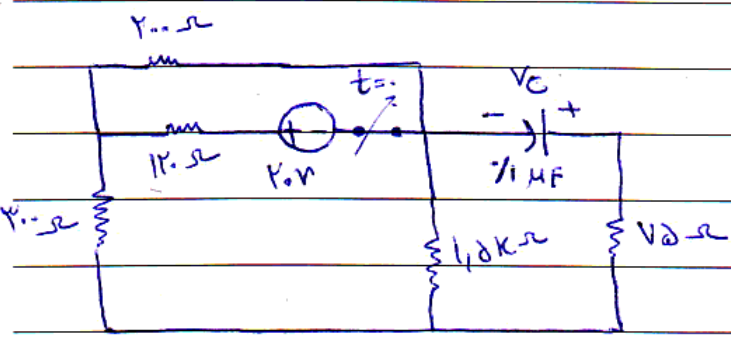 ۲۰۰ Ω
t=۰
Vc
- +
+ -
۱۲۰ Ω
۲۰V
۰/۱ μF
۳۰۰ Ω
۱,۵ KΩ
۷۵ Ω